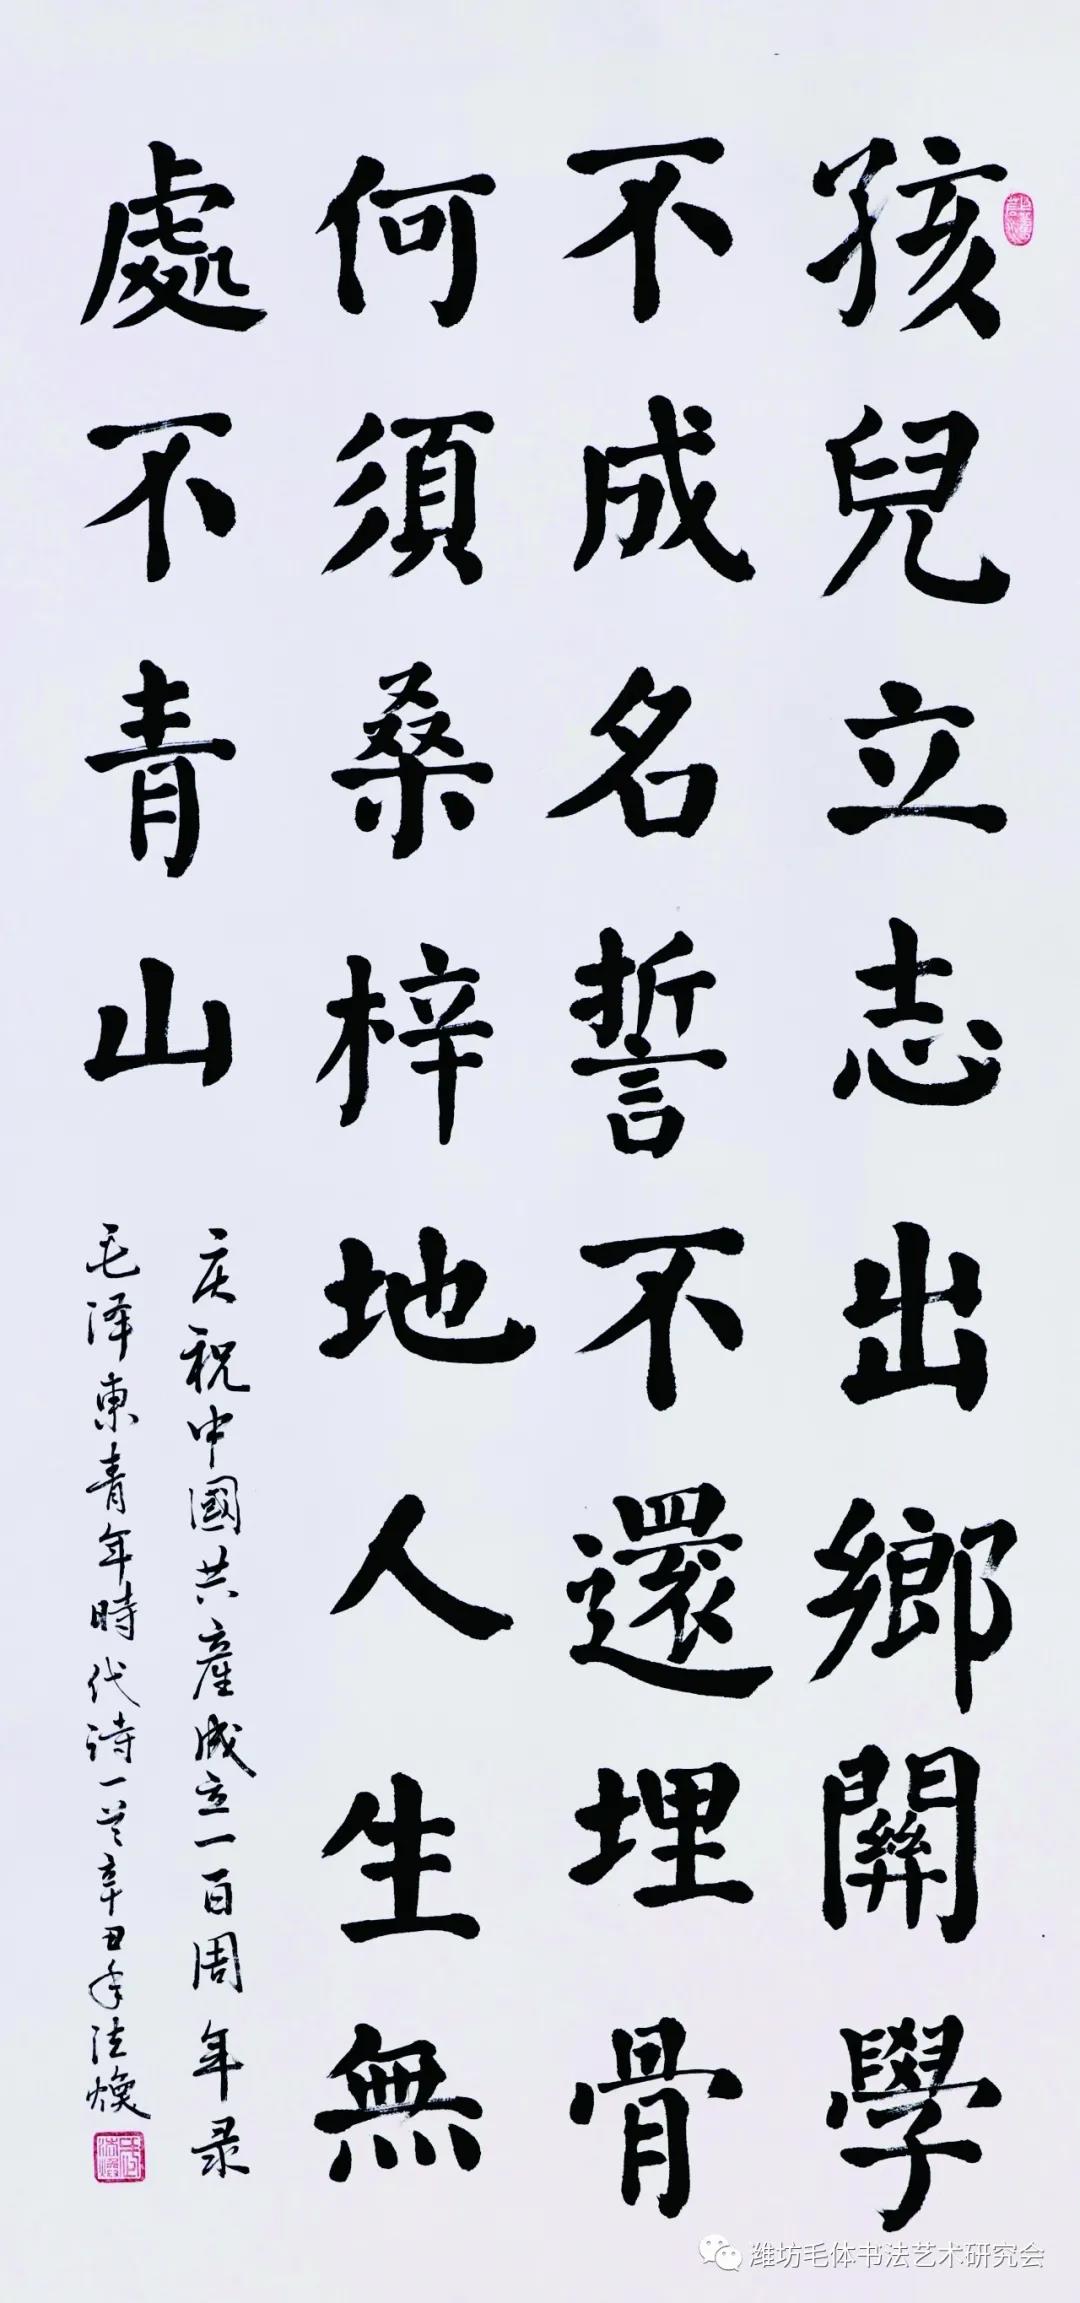 孩兒立志出鄉關學
不成名誓不還埋骨
何須桑梓地人生無
處不青山
庆祝中國共產成立一百周年录
毛泽東青年時代诗一首辛丑年法焕
潍坊毛体书法艺术研究会